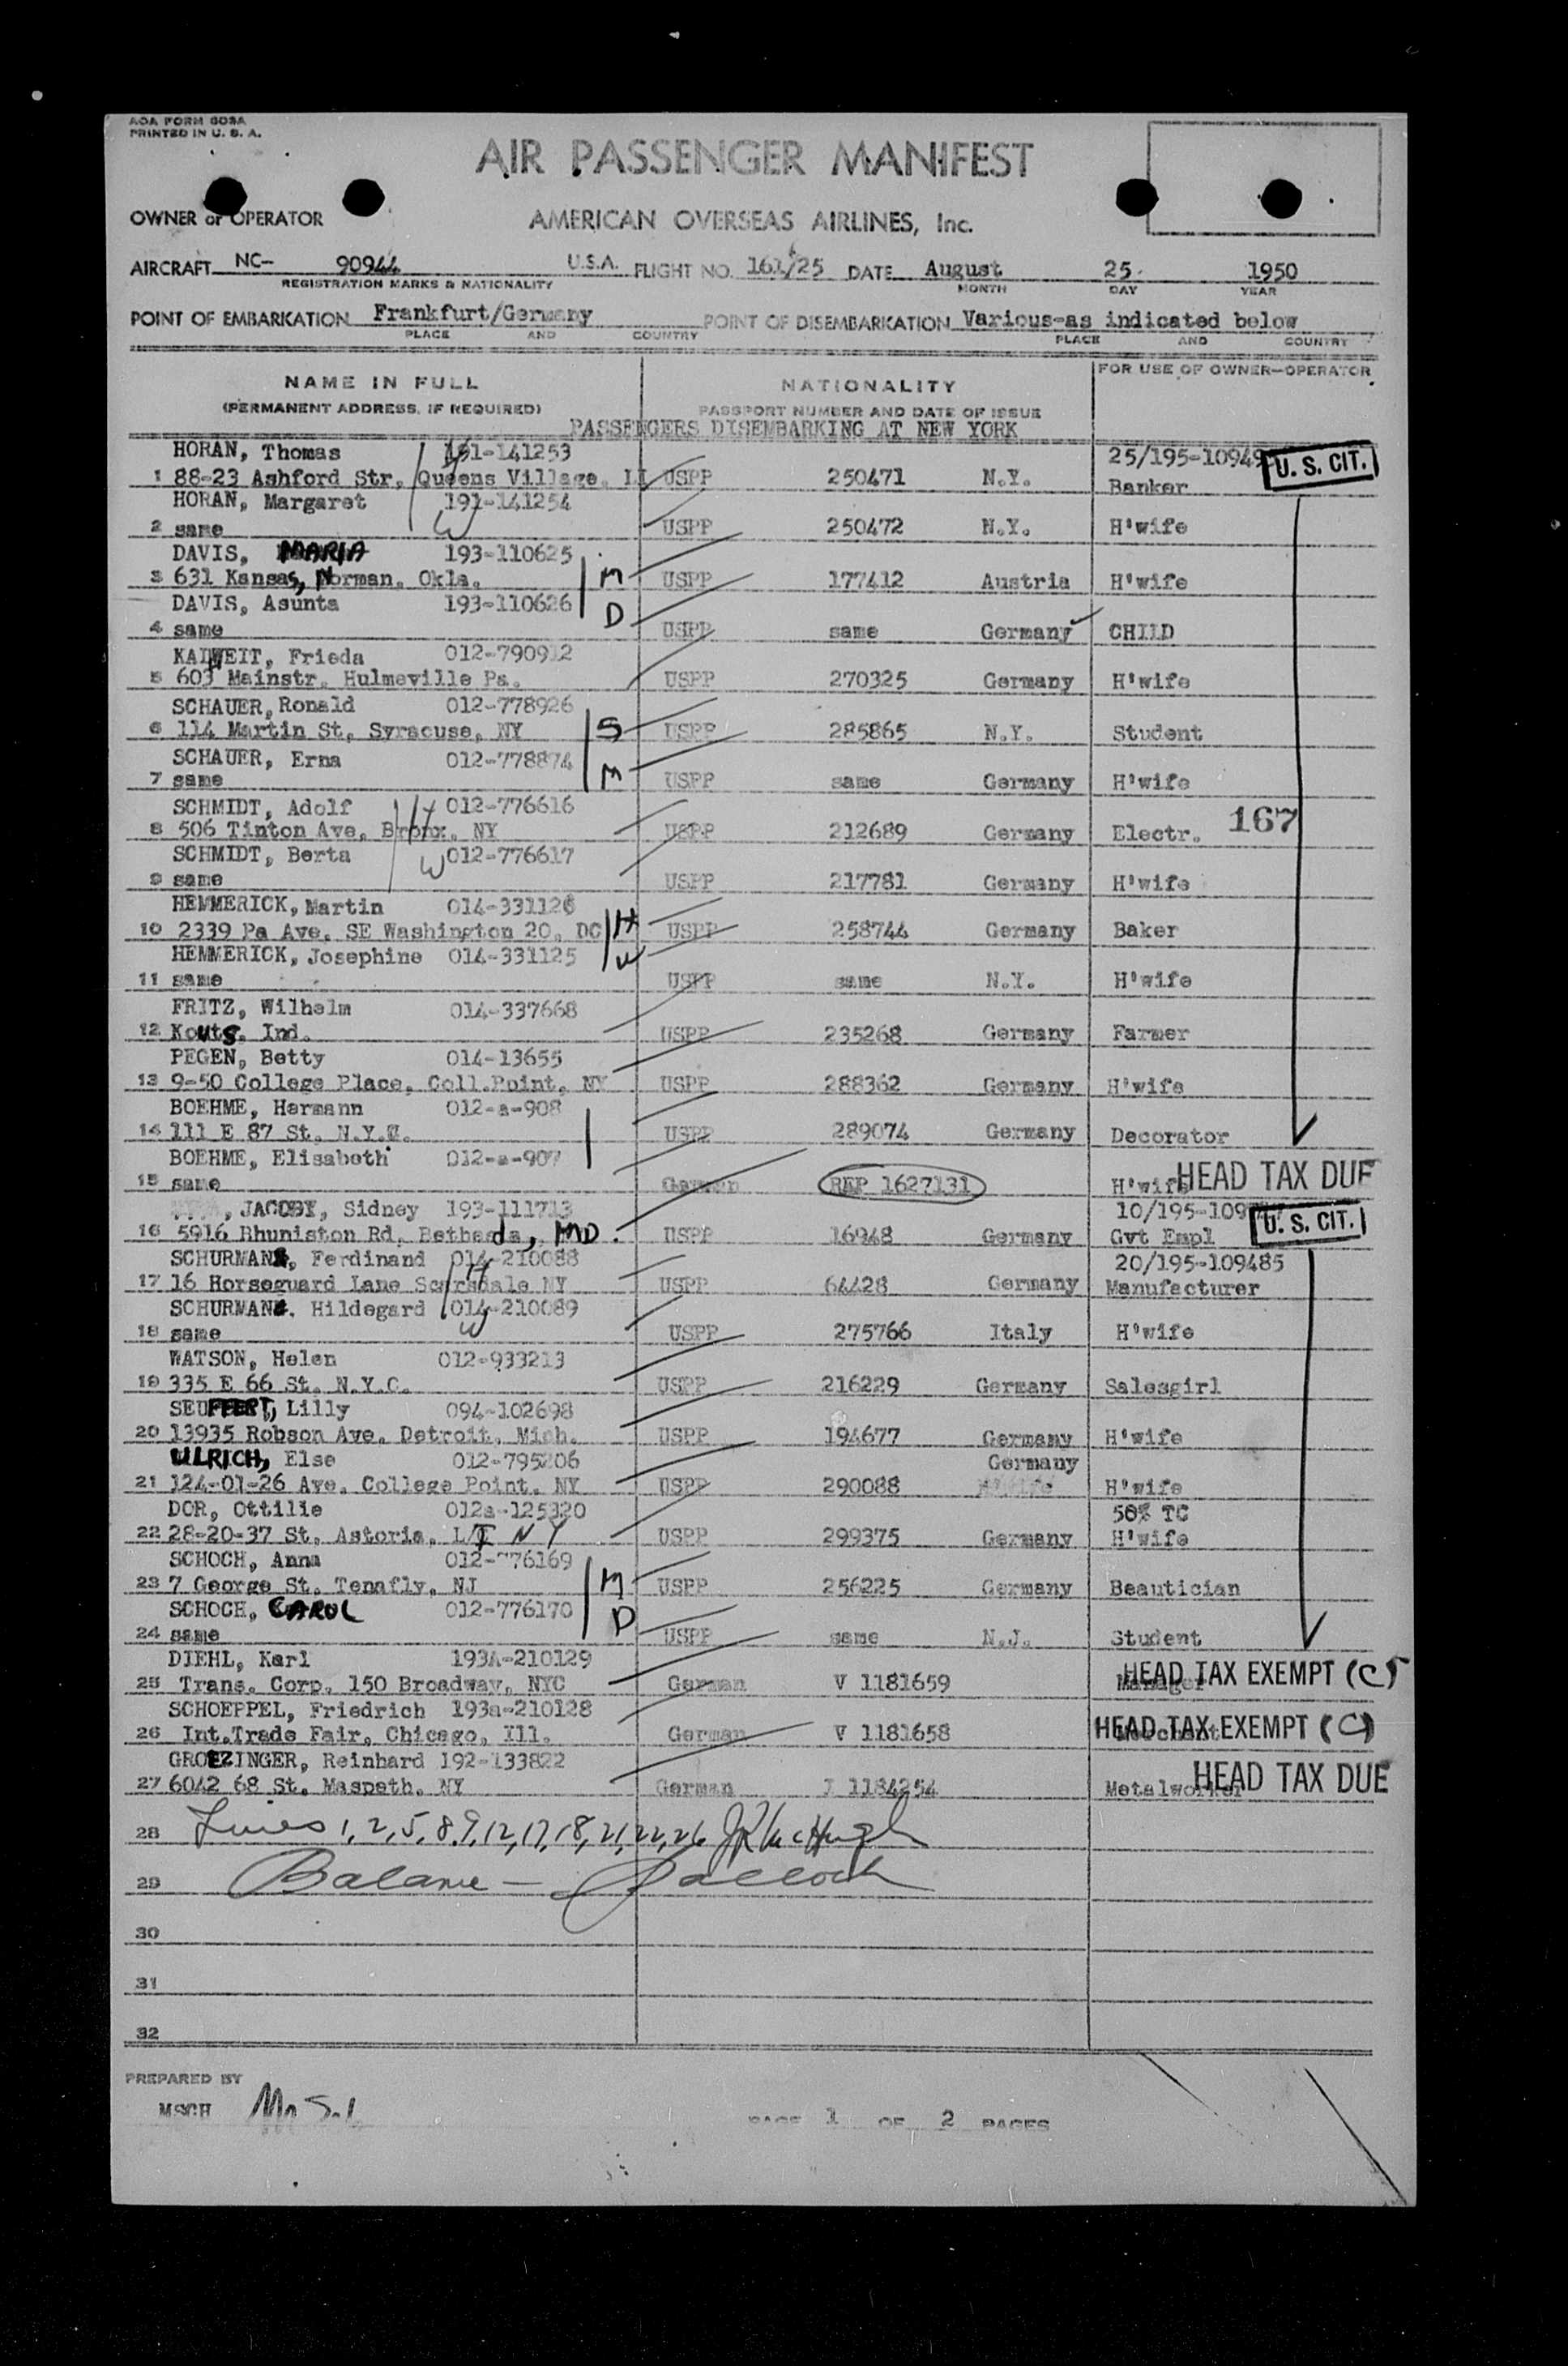 AOA FORM 603A
PRINTED IN U. S. A.
AIR PASSENGER MANIFEST
OWNER or OPERATOR AMERICAN OVERSEAS AIRLINES, Inc.
AIRCRAFT NC- 90944 U.S.A. FLIGHT NO. 161/25 DATE August 25 1950
REGISTRATION MARKS & NATIONALITY MONTH DAY YEAR
POINT OF EMBARKATION Frankfurt/Germany POINT OF DISEMBARKATION Various-as indicated below
PLACE AND COUNTRY PLACE AND COUNTRY
NAME IN FULL NATIONALITY FOR USE OF OWNER-OPERATOR
(PERMANENT ADDRESS, IF REQUIRED) PASSPORT NUMBER AND DATE OF ISSUE
PASSENGERS DISEMBARKING AT NEW YORK
HORAN, Thomas 191-141253 25/195-10949 U. S. CIT.
1 88-23 Ashford Str, Queens Village, LI USPP 250471 N.Y. Banker
HORAN, Margaret 191-141254 W
2 same USPP 250472 N.Y. H'wife
DAVIS, MARIA 193-110625
3 631 Kansas, Norman, Okla. M USPP 177412 Austria H'wife
DAVIS, Asunta 193-110626 D
4 same USPP same Germany CHILD
KALWEIT, Frieda 012-790912
5 603 Mainstr. Hulmeville Pa. USPP 270325 Germany H'wife
SCHAUER, Ronald 012-778926
6 114 Martin St, Syracuse, NY S USPP 285865 N.Y. Student
SCHAUER, Erna 012-778874 M
7 same USPP same Germany H'wife
SCHMIDT, Adolf H 012-776616
8 506 Tinton Ave, Bronx, NY USPP 212689 Germany Electr. 167
SCHMIDT, Berta W 012-776617
9 same USPP 217781 Germany H'wife
HEMMERICK, Martin 014-331126
10 2339 Pa Ave. SE Washington 20, DC H USPP 258744 Germany Baker
HEMMERICK, Josephine 014-331125 W
11 same USPP same N.Y. H'wife
FRITZ, Wilhelm 014-337668
12 Kouts. Ind. USPP 235268 Germany Farmer
PEGEN, Betty 014-13655
13 9-50 College Place, Coll.Point, NY USPP 288362 Germany H'wife
BOEHME, Hermann 012-a-908
14 111 E 87 St. N.Y.C. USPP 289074 Germany Decorator
BOEHME, Elisabeth 012-a-907
15 same German REP 1627131 H'wife HEAD TAX DUE
, JACOBY, Sidney 193-111713 10/195-109 U. S. CIT.
16 5916 Rhuniston Rd, Bethesda, MD. USPP 16948 Germany Gvt Empl
SCHURMAN, Ferdinand 014-210088 H 20/195-109485
17 16 Horseguard Lane Scarsdale NY USPP 64428 Germany Manufacturer
SCHURMAN, Hildegard 014-210089 W
18 same USPP 275766 Italy H'wife
WATSON, Helen 012-933213
19 335 E 66 St. N.Y.C. USPP 216229 Germany Salesgirl
SEUFFERT, Lilly 094-102698
20 13935 Robson Ave. Detroit, Mich. USPP 194677 Germany H'wife
ULRICH, Else 012-795206 Germany
21 124-01-26 Ave. College Point, NY USPP 290088 H'wife
DOR, Ottilie 012a-125320 50% TC
22 28-20-37 St, Astoria, LI NY USPP 299375 Germany H'wife
SCHOCH, Anna 012-776169
23 7 George St. Tenafly, NJ M USPP 256225 Germany Beautician
SCHOCH, CAROL 012-776170 D
24 same USPP same N.J. Student
DIEHL, Karl 193A-210129
25 Trans. Corp. 150 Broadway, NYC German V 1181659 Manager HEAD TAX EXEMPT (C)
SCHOEPPEL, Friedrich 193a-210128
26 Int.Trade Fair, Chicago, Ill. German V 1181658 Merchant HEAD TAX EXEMPT (C)
GROEZINGER, Reinhard 192-133822
27 6042 68 St. Maspeth, NY German 1184254 Metalworker HEAD TAX DUE
28 Lines 1,2,5,8,9,12,17,18,21,22,26 JR McHugh
29 Balance -
30
31
32
PREPARED BY
MSCH
PAGE 1 OF 2 PAGES